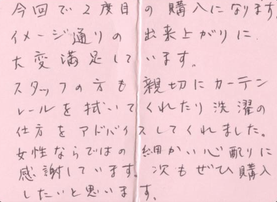 今回で2度目の購入になります。
イメージ通りの出来上がりに
大変満足しています。
スタッフの方も親切にカーテン
レールを拭いてくれたり洗濯の
仕方をアドバイスしてくれました。
女性ならではの細かい心配りに
感謝しています。次もぜひ購入
したいと思います。